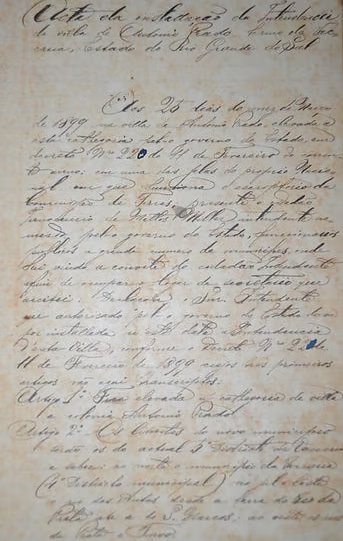 Acta da installação da Intendencia
da villa de Antonio Prado, termo da Vac
caria, Estado do Rio Grande do Sul
Aos 25 dias do mez de Março
de 1899 na villa de Antonio Prado, elevada a
esta cathegoria pelo governo do Estado, em
decreto Nº 220 de 11 de Fevereiro do corren
te anno, em uma das salas do proprio Nacio
nal em que funciona o escriptorio da
Commissão de Terras, presente o cidadão
Innocencio de Mattos Miller, intendente no
meado pelo governo do Estado, funccionarios
publicos e grande numero de municipes,
vindo a convite do cidadão Intendente
de secretario que
Declarou o Snr. Intendente
que autorisado p.lo governo do Estado dava
por installada n'esta data a Intendencia
desta Villa, conforme o Decreto Nº 220 de
11 de Fevereiro de 1899 cujos primeiros
artigos vão aqui transcriptos.
Artigo 1º Fica elevada á cathegoria de villa
a colonia Antonio Prado
Artigo 2º Os limites do novo municipio
serão os do actual 5º Districto da Vaccaria
a saber: ao norte o municipio da Vaccaria
(4º Districto municipal)
o rio das Antas desde a barra do Rio da
Prata até a de S. Marcos, ao oeste o rio
da Prata e Turvo